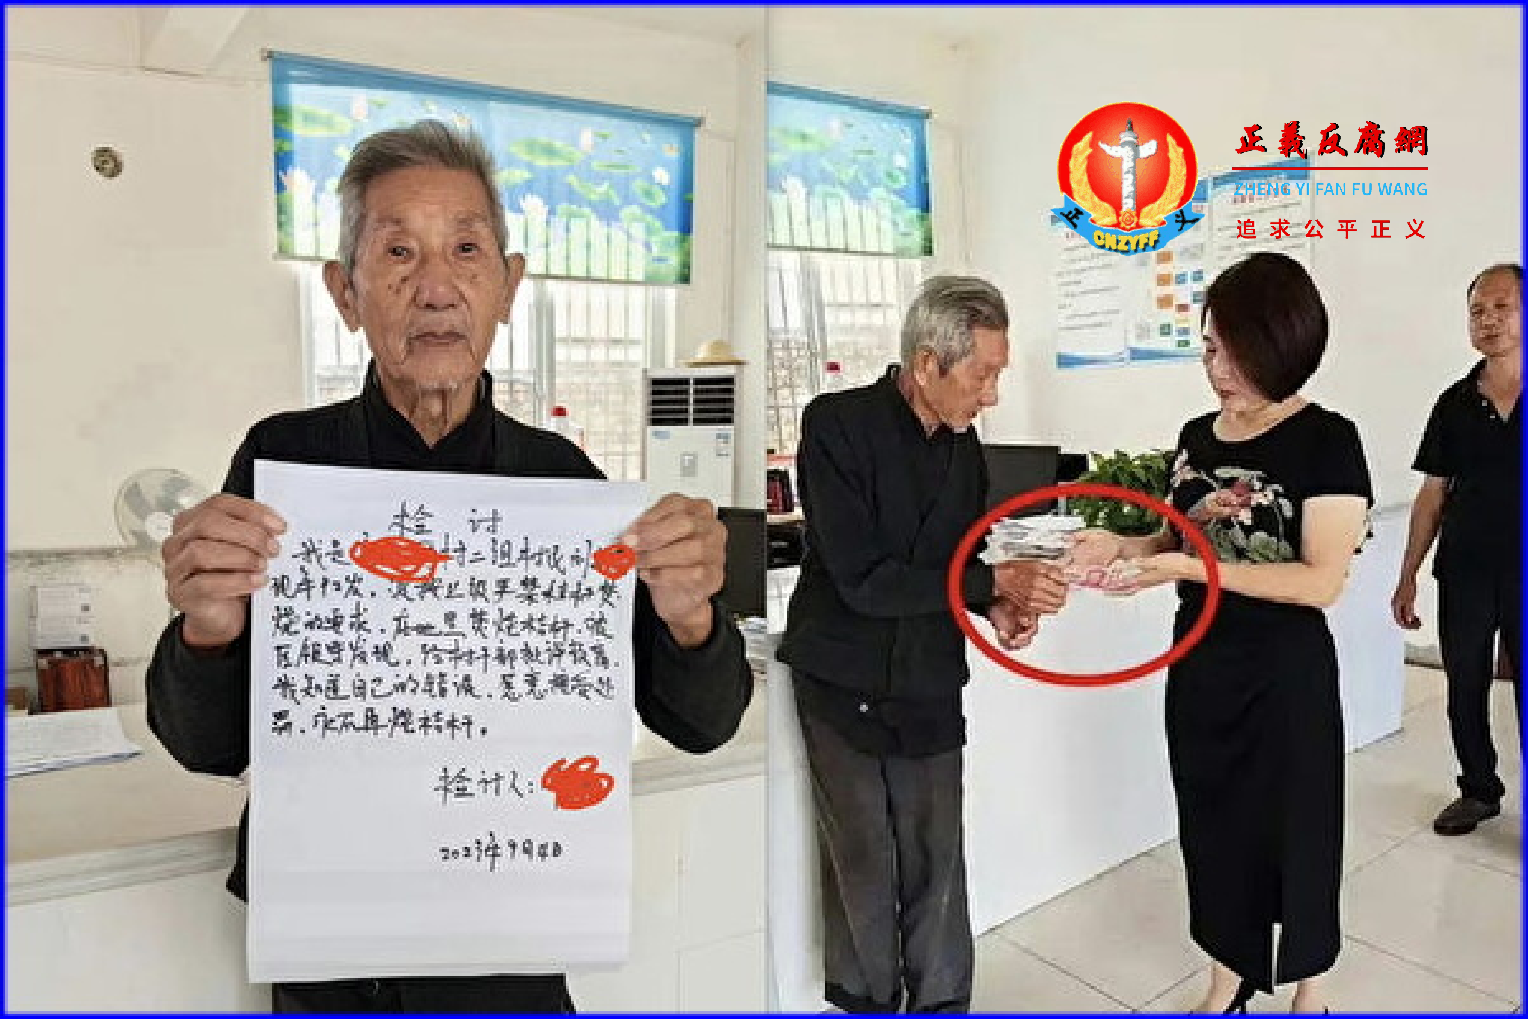 检 讨
我是 村二组村民刘
现年92岁,没按上级严禁秸秆焚
烧的要求,在地里焚烧秸秆,被
巨银等发现,给村干部批评教育,
我知道自己的错误,愿意接受处
罚,永不再烧秸秆。
检讨人:
2023年9月4日
正義反腐網
ZHENG YI FAN FU WANG
追求公平正义
正 义
CNZYFF